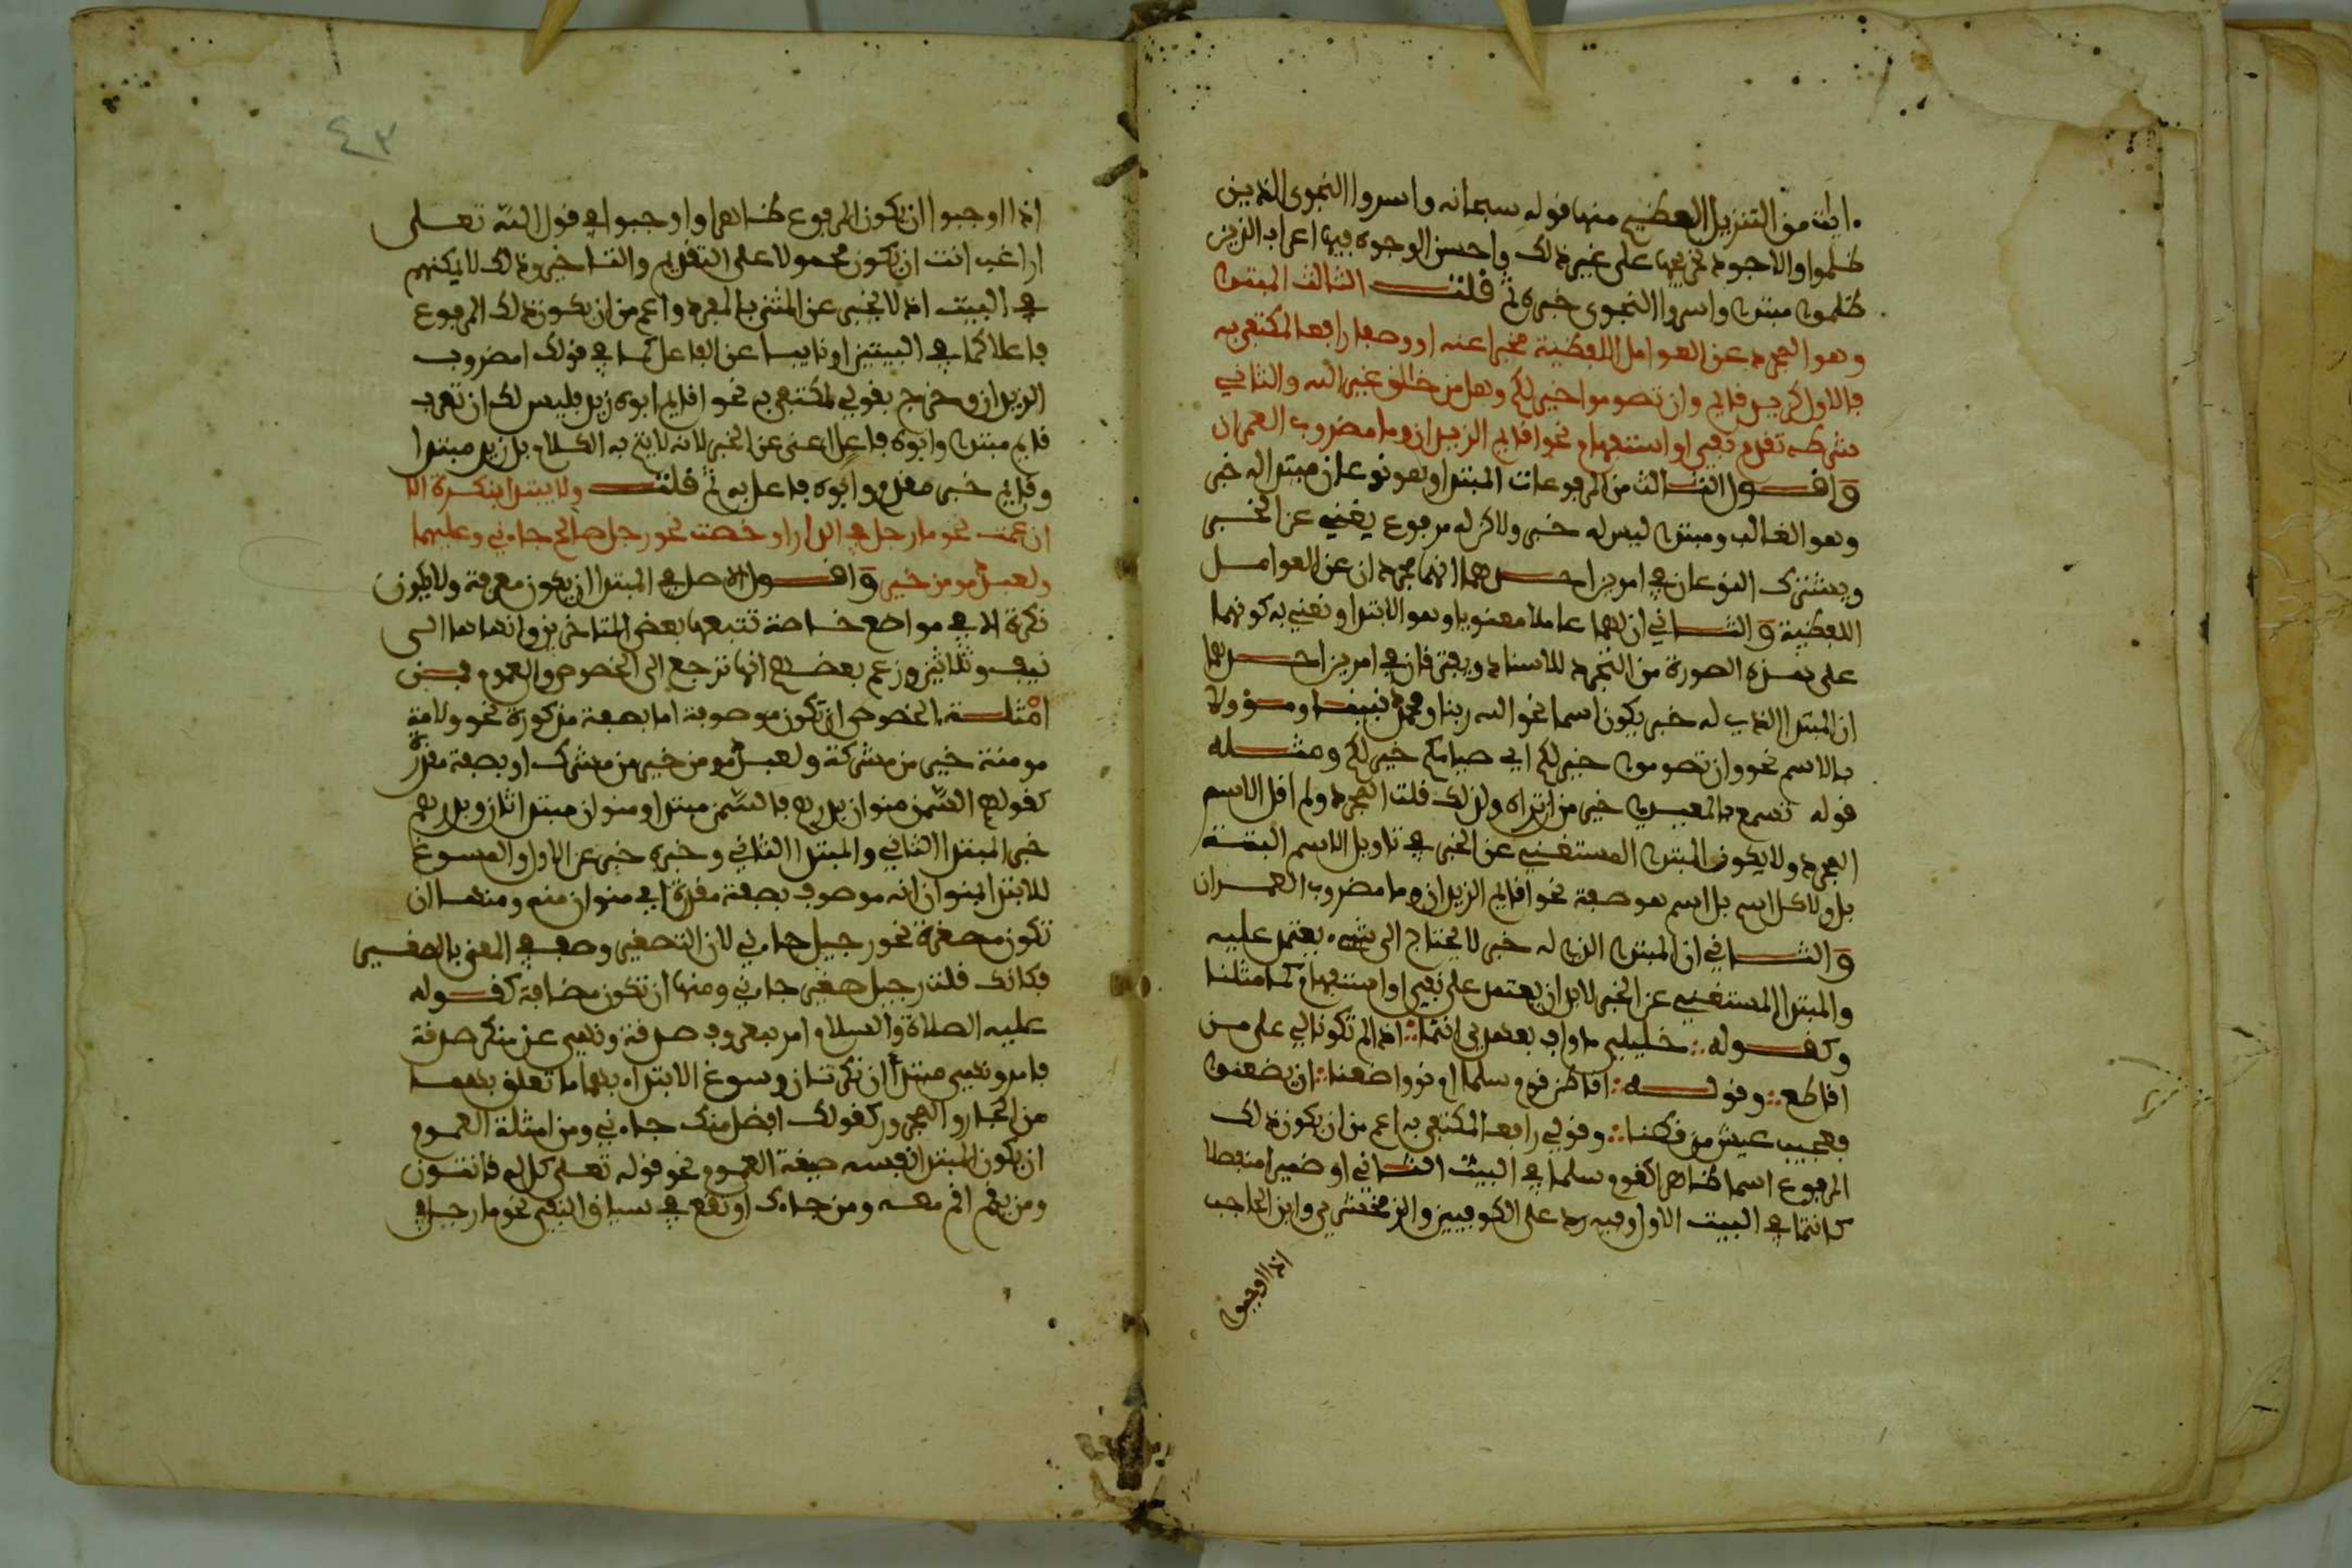 ايات من التنزيل العظيم منها قوله سبحانه واسروا النجوى الذين
ظلموا والاجود تخريجها على غير ذلك واحسن الوجوه فيها اعراب الذين
ظلموا مبتدا واسروا النجوى خبره ثم قلت الثالث المبتدا
وهو المجرد عن العوامل اللفظية مخبرا عنه او وصفا رافعا لمكتفى به
فالاول كزيد قايم وان تصوموا خير لكم وهل من خالق غير الله والثاني
شرطه تقدم نفي او استفهام نحو اقايم الزيدان وما مضروب العمران
واقول الثالث من المرفوعات المبتدا وهو نوعان مبتدا له خبر
وهو الغالب ومبتدا ليس له خبر ولاكن له مرفوع يغني عن الخبر
ويشترك النوعان في امرين احدهما انهما مجردان عن العوامل
اللفظية والثاني ان لهما عاملا معنويا وهو الابتدا ونعني به كونهما
على هذه الصورة من التجرد للاسناد ويفترقان في امرين احدهما
ان المبتدا الذي له خبر يكون اسما نحو الله ربنا ومحمد نبينا ومؤولا
بالاسم نحو وان تصوموا خير لكم اي صيامكم خير لكم ومثله
قوله تسمع بالمعيدي خير من ان تراه ولذلك قلت المجرد ولم اقل الاسم
المجرد ولا يكون المبتدا المستغني عن الخبر في تاويل الاسم البتة
بل ولا كل اسم بل اسم هو صفة نحو اقايم الزيدان وما مضروب العمران
والثاني ان المبتدا الذي له خبر لا يحتاج الى شيء يعتمد عليه
والمبتدا المستغني عن الخبر لابد ان يعتمد على نفي او استفهام كما مثلنا
وكقوله خليلي ما واف بعهدي انتما اذا لم تكونا لي على من
اقاطع وقوله اقاطن قوم سلما ام نووا ظعنا ان يظعنوا
فعجيب عيش من قطنا وقولي رافعا لمكتفى به اعم من ان يكون ذلك
المرفوع اسما ظاهرا كقوم سلما في البيت الثاني او ضميرا منفصلا
كانتما في البيت الاول وفيه رد على الكوفيين والزمخشري وابن الحاجب
اذا اوجبوا
٤٣
اذا اوجبوا ان يكون المرفوع ظاهرا واوجبوا في قول الله تعلى
اراغب انت ان يكون محمولا على التقديم والتاخير وذلك لا يمكنهم
في البيت اذ لا يخبر عن المثنى بالمفرد واعم من ان يكون ذلك المرفوع
فاعلا كما في البيتين او نايبا عن الفاعل كما في قولك امضروب
الزيدان وخرج بقولي لمكتفى به نحو اقايم ابوه زيد فليس لك ان تعرب
قايم مبتدا وابوه فاعلا اغنى عن الخبر لانه لا يتم به الكلام بل زيد مبتدا
وقايم خبر مقدم وابوه فاعل به ثم قلت ولا يبتدا بنكرة الا
ان عمت نحو ما رجل في الدار او خصت نحو رجل صالح جاءني وعليهما
ولعبد مومن خير واقول الاصل في المبتدا ان يكون معرفة ولا يكون
نكرة الا في مواضع خاصة تتبعها بعض المتاخرين وانهاها الى
نيف وثلاثين وزعم بعضهم انها ترجع الى الخصوص والعموم فمن
امثلة الخصوص ان تكون موصوفة اما بصفة مذكورة نحو ولامة
مومنة خير من مشركة ولعبد مومن خير من مشرك او بصفة مقدرة
كقولهم السمن منوان بدرهم فالسمن مبتدا ومنوان مبتدا ثان وبدرهم
خبر المبتدا الثاني والمبتدا الثاني وخبره خبر عن الاول والمسوغ
للابتدا بمنوان انه موصوف بصفة مقدرة اي منوان منه ومنها ان
تكون مصغرة نحو رجيل جاءني لان التصغير وصف في المعنى بالصغير
فكانك قلت رجل صغير جاءني ومنها ان تكون مضافة كقوله
عليه الصلاة والسلام امر بمعروف صدقة ونهي عن منكر صدقة
فامر ونهي مبتدآن نكرتان وسوغ الابتداء بهما ما تعلق بهما
من الجار والمجرور كقولك افضل منك جاءني ومن امثلة العموم
ان يكون المبتدا نفسه صيغة العموم نحو قوله تعلى كل له قانتون
ومن يقم اقم معه ومن جاءك او تقع في سياق النفي نحو ما رجل في